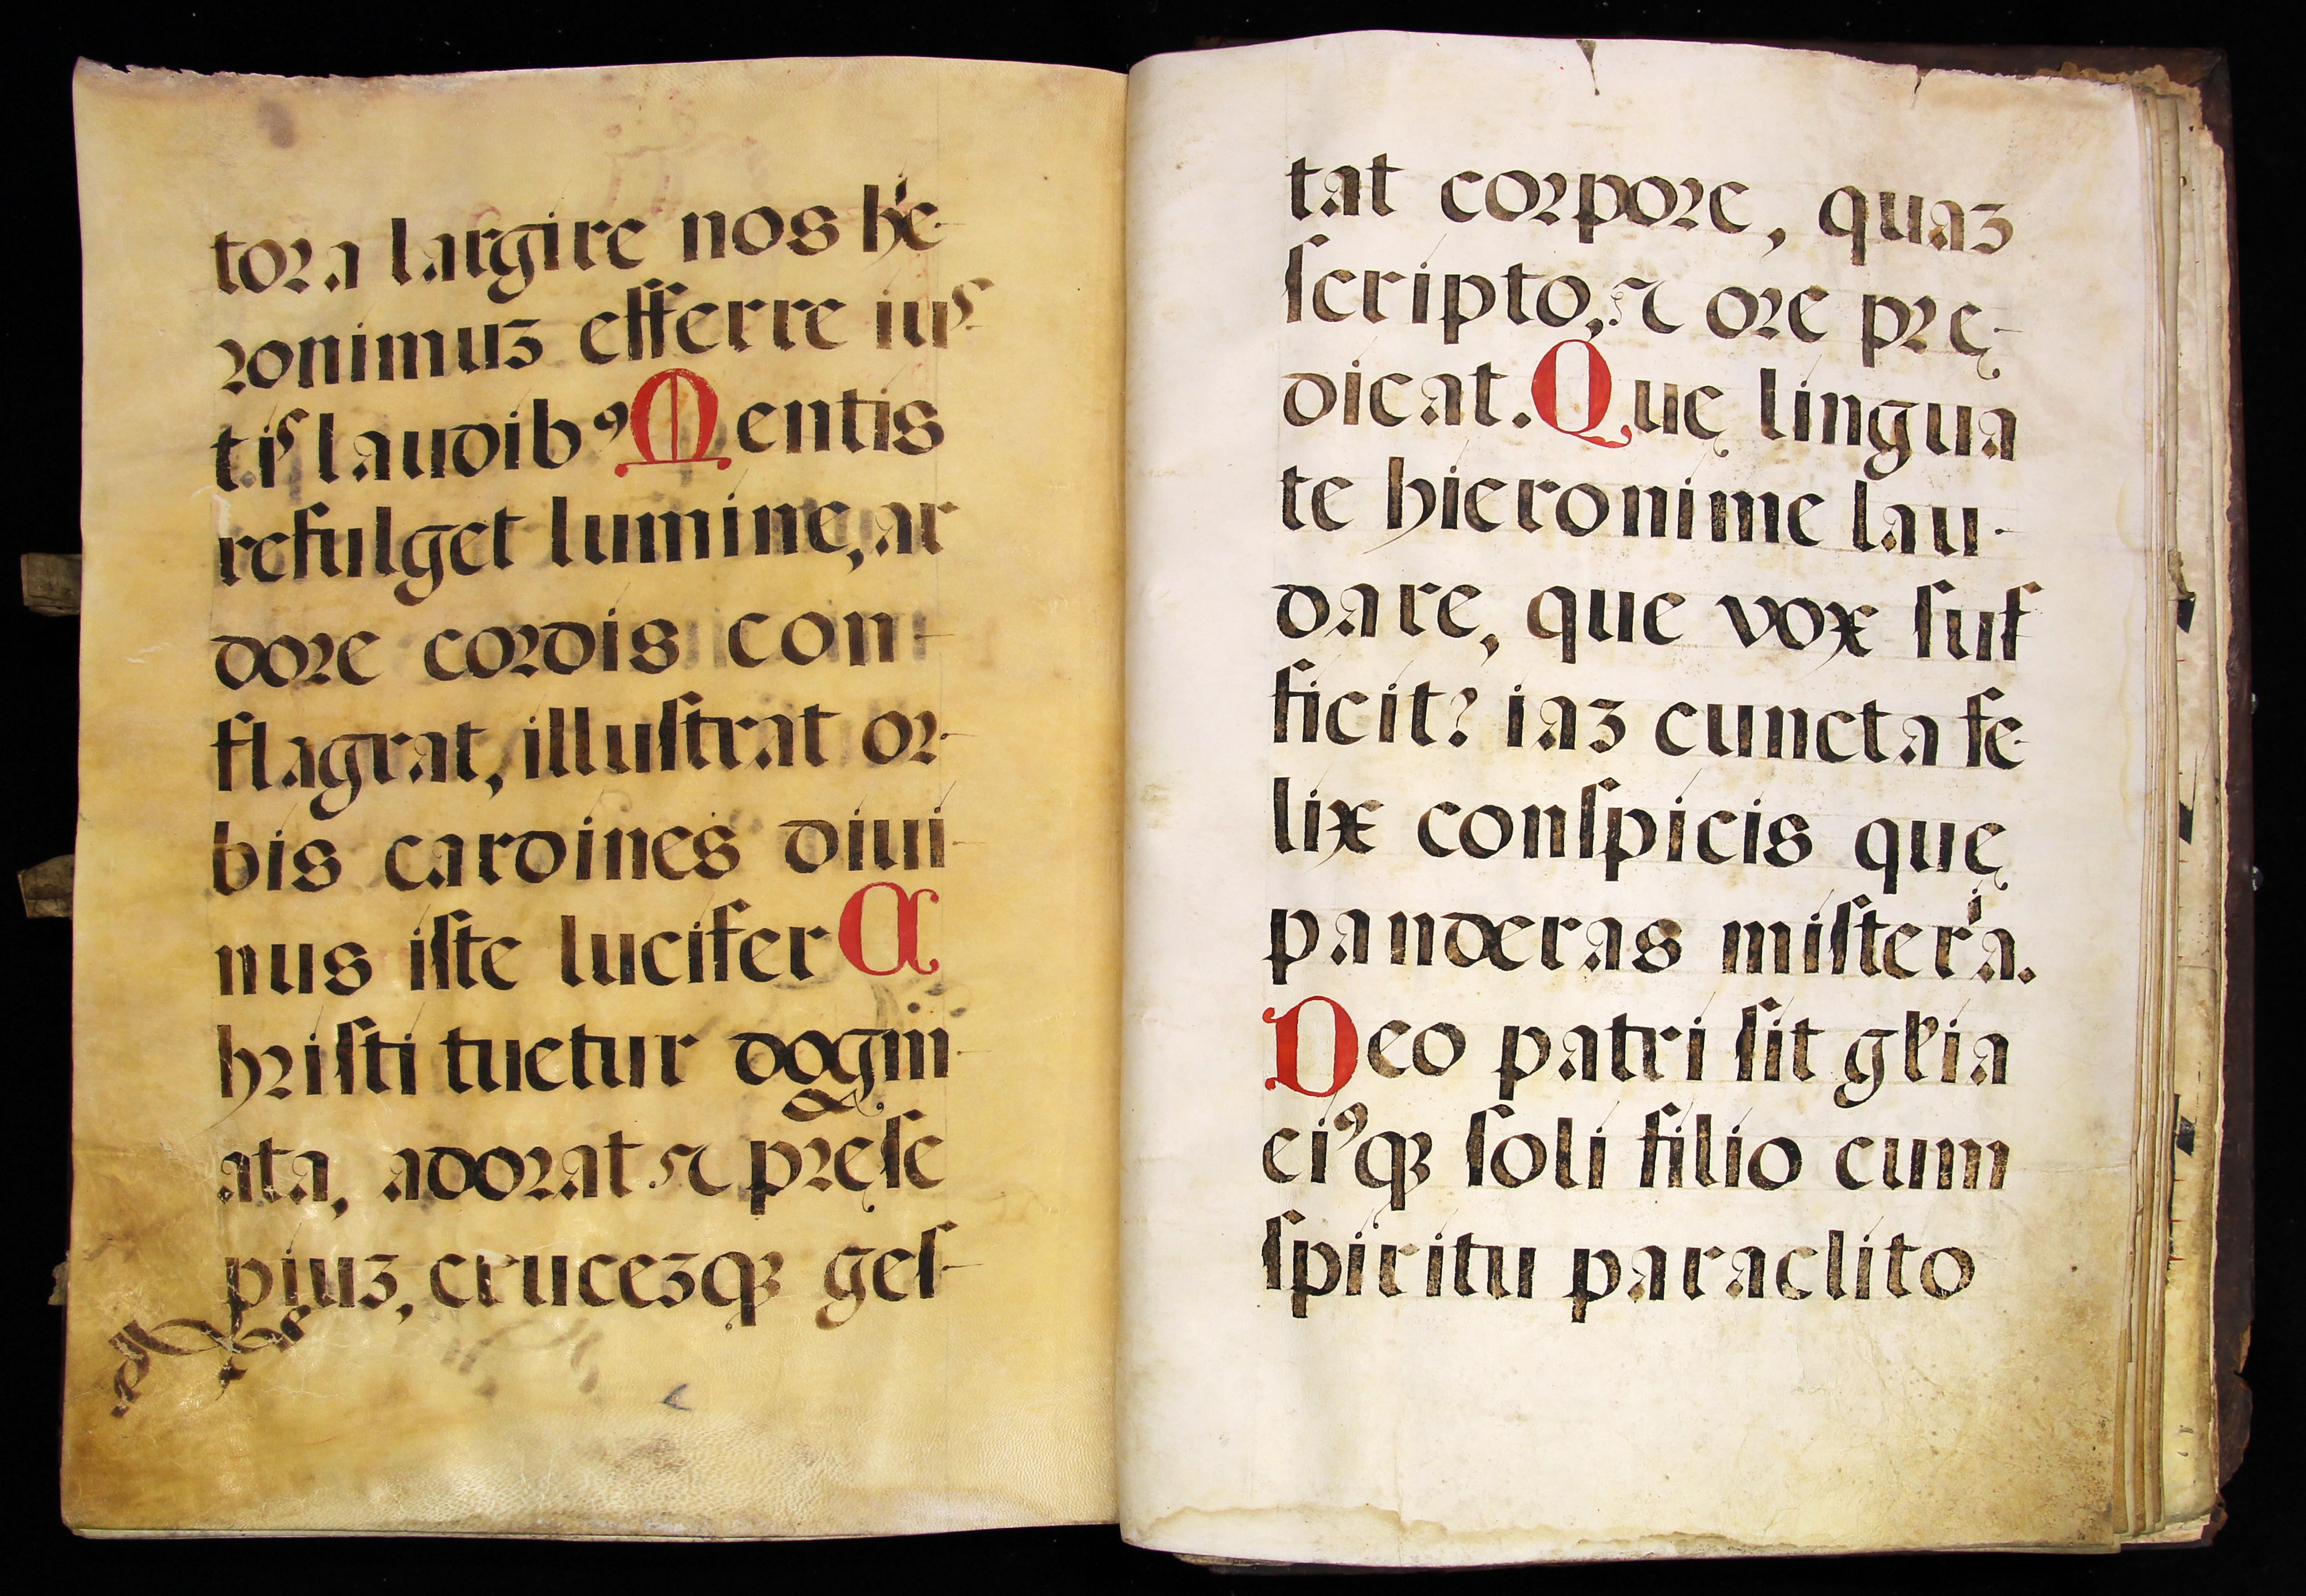 tora largire nos hͥe-
ronimuꝫ efferre iuſ-
tiſ laudibꝰ Mentis
refulget lumine, ar
dore cordis con-
flagrat, illuſtrat or-
bis cardines diui-
nus iſte lucifer C
hriſti tuetur dogm-
ata, adorat ⁊ pręſe
piuꝫ, cruceꝫqꝫ geſ-
tat corpore, quaꝫ
ſcripto, ⁊ ore prę-
dicat. Quę lingua
te hieronime lau-
dare, que vox ſuf
ficit? iaꝫ cuncta fe-
lix conſpicis quę
panderas miſterͥa.
Deo patri ſit gl̄ia
eiꝰqꝫ ſoli filio cum
ſpiritu paraclito